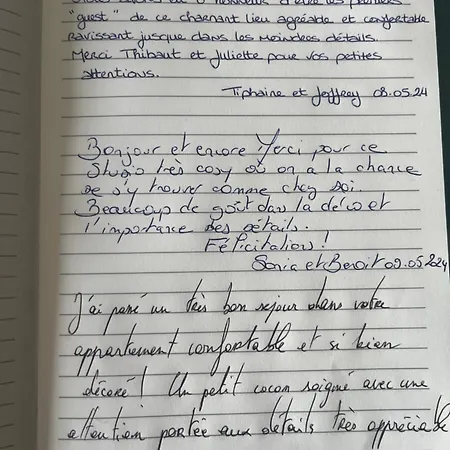 "guest" de ce charmant lieu agréable et confortable
ravissant jusque dans les moindres détails.
Merci Thibaut et Juliette pour vos petites
attentions.
Tiphaine et Joffrey 08.05.24
Bonjour et encore Merci pour ce
Studio très cosy où on a la chance
de s'y trouver comme chez soi.
Beaucoup de goût dans la déco et
l'importance des détails.
Félicitations !
Sonia et Benoit 09.05.2024
J'ai passé un très bon sejour dans votre
appartement comfortable et si bien
décoré ! Un petit cocon soigné avec une
attention portée aux détails très appréciable